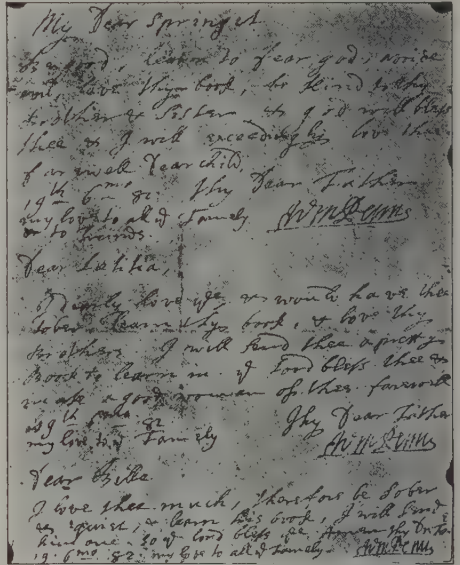 My Dear Springet
Be good, learn to fear god, avoide
evil, love thy book, be kind to thy
Brother & Sister & god will bless
thee & I will exceedingly love thee
farewell Dear child,
19th 6mo 82. thy Dear Father
my love to all ye Family Wm Penn
& to friends.
Dear Laetitia,
I dearly love ye, & would have thee
sober, learn thy book, & love thy
Brothers. I will send thee a pretty
Book to learn in. ye Lord bless thee &
make a good woman of thee. farewell
19th 82 Thy Dear Father
my love to ye Family Wm Penn
Dear Bille
I love thee much, therefore be sober
& quiet, & learn his book, I will send
him one. so ye lord bless ye. Amen
19. 6mo 82. my love to all ye Family. Wm Penn